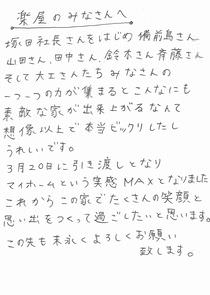 楽屋のみなさんへ
塚田社長さんをはじめ 備前島さん
山田さん、田中さん、鈴木さん 斉藤さん
そして大工さんたち みなさんの
一つ一つの力が集まるとこんなにも
素敵な家が出来上がるなんて
想像以上で本当ビックリしたし
うれしいです。
3月20日に引き渡しとなり
マイホームという実感MAXとなりました
これから この家でたくさんの笑顔と
思い出をつくって過ごしたいと思います。
この先も末永くよろしくお願い
致します。